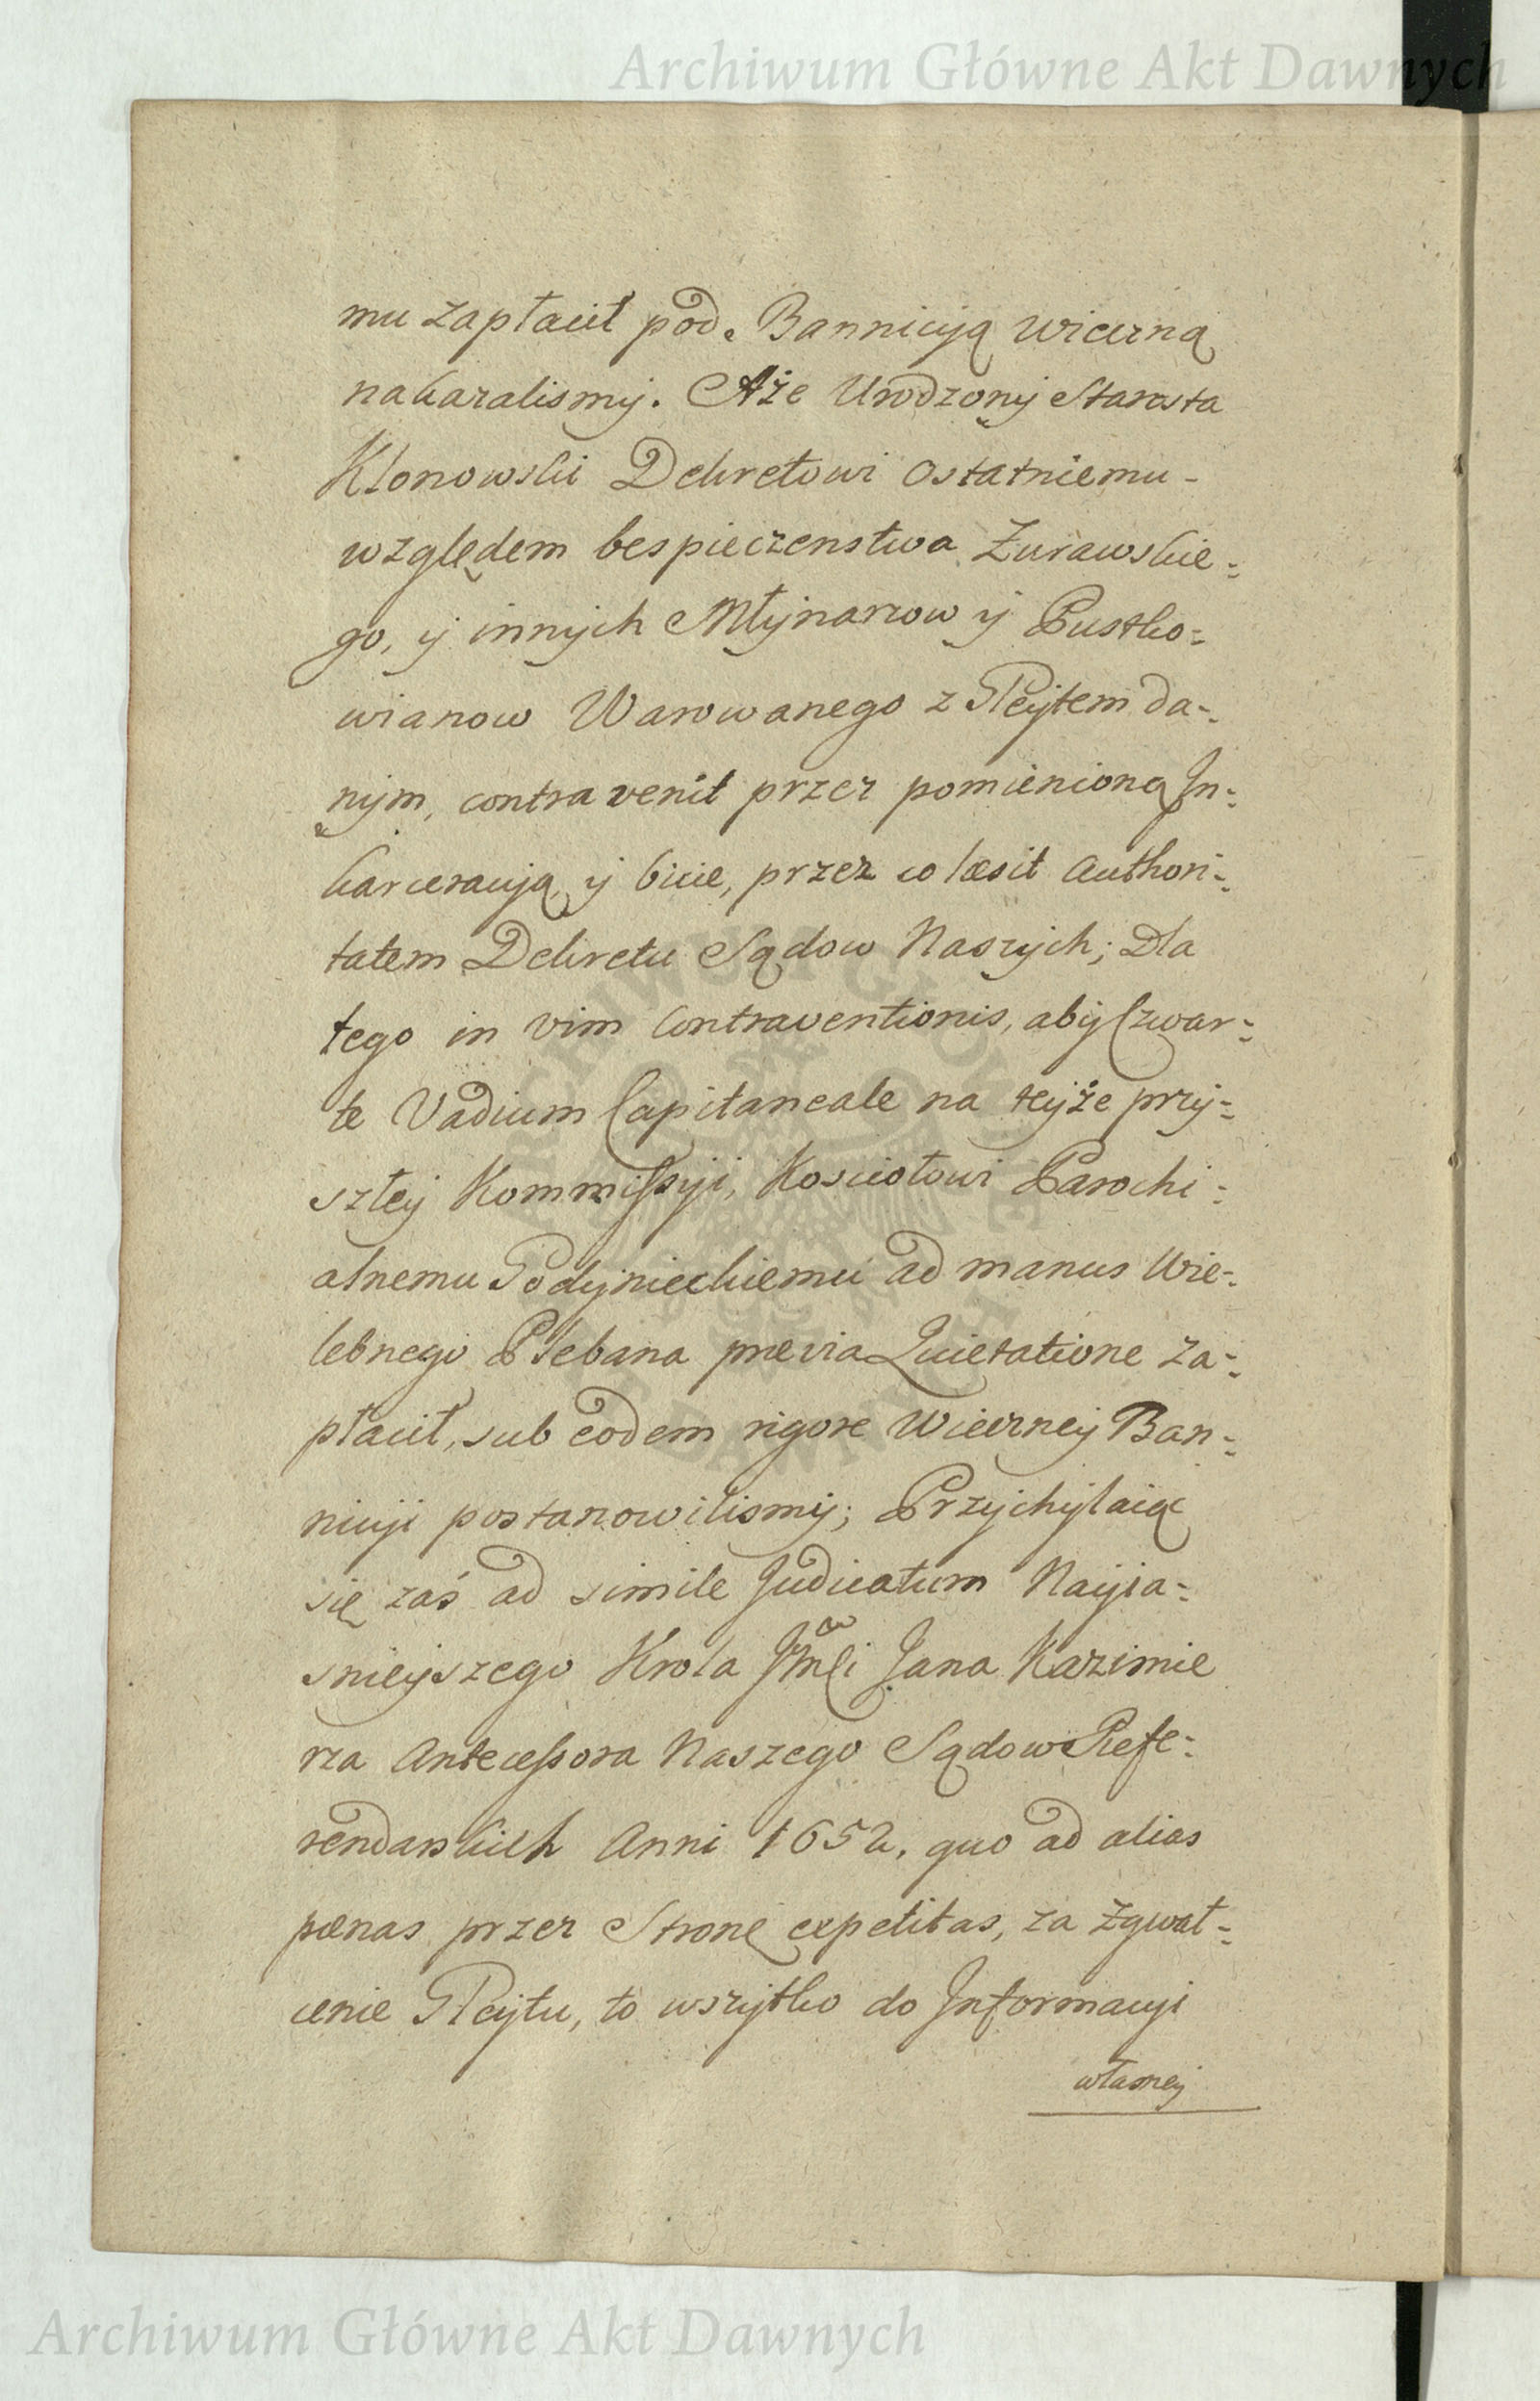 Archiwum Główne Akt Dawnych
mu zapłacił pod. Bannicyją wieczną
nakazalismy. Aże Urodzony Starosta
Klonowski Dekretowi ostatniemu-
względem bespieczenstwa Żurawskie-
go, y innych Młynarzow y Pustko-
wianow Warowanego z Gleytem da-
nym, contravenit przez pomienioną In-
karceracyją y bicie, przez co læsit Authori-
tatem Dekretu Sądow Naszych; Dla
tego in vim Contraventionis, aby Czwar-
te Vadium Capitaneale na teyże przy-
szłey Kommissyji, Kosciołowi Parochi-
alnemu Godynieckiemu ad manus Wie-
lebnego Plebana prævia Quietatione za-
płacił, sub eodem rigore Wieczney Ban-
nicyji postanowilismy; Przychylaiąc
się zaś ad simile Judicatum Nayia-
snieyszego Krola Jmci Jana Kazimie
rza Antecessora Naszego Sądow Refe-
rendarskich Anni 1652. quo ad alias
pœnas przez Stronę expetitas, za zgwał-
cenie Gleytu, to wszytko do Informacyi
własney
ARCHIWUM GŁÓWNE AKT DAWNYCH
Archiwum Główne Akt Dawnych